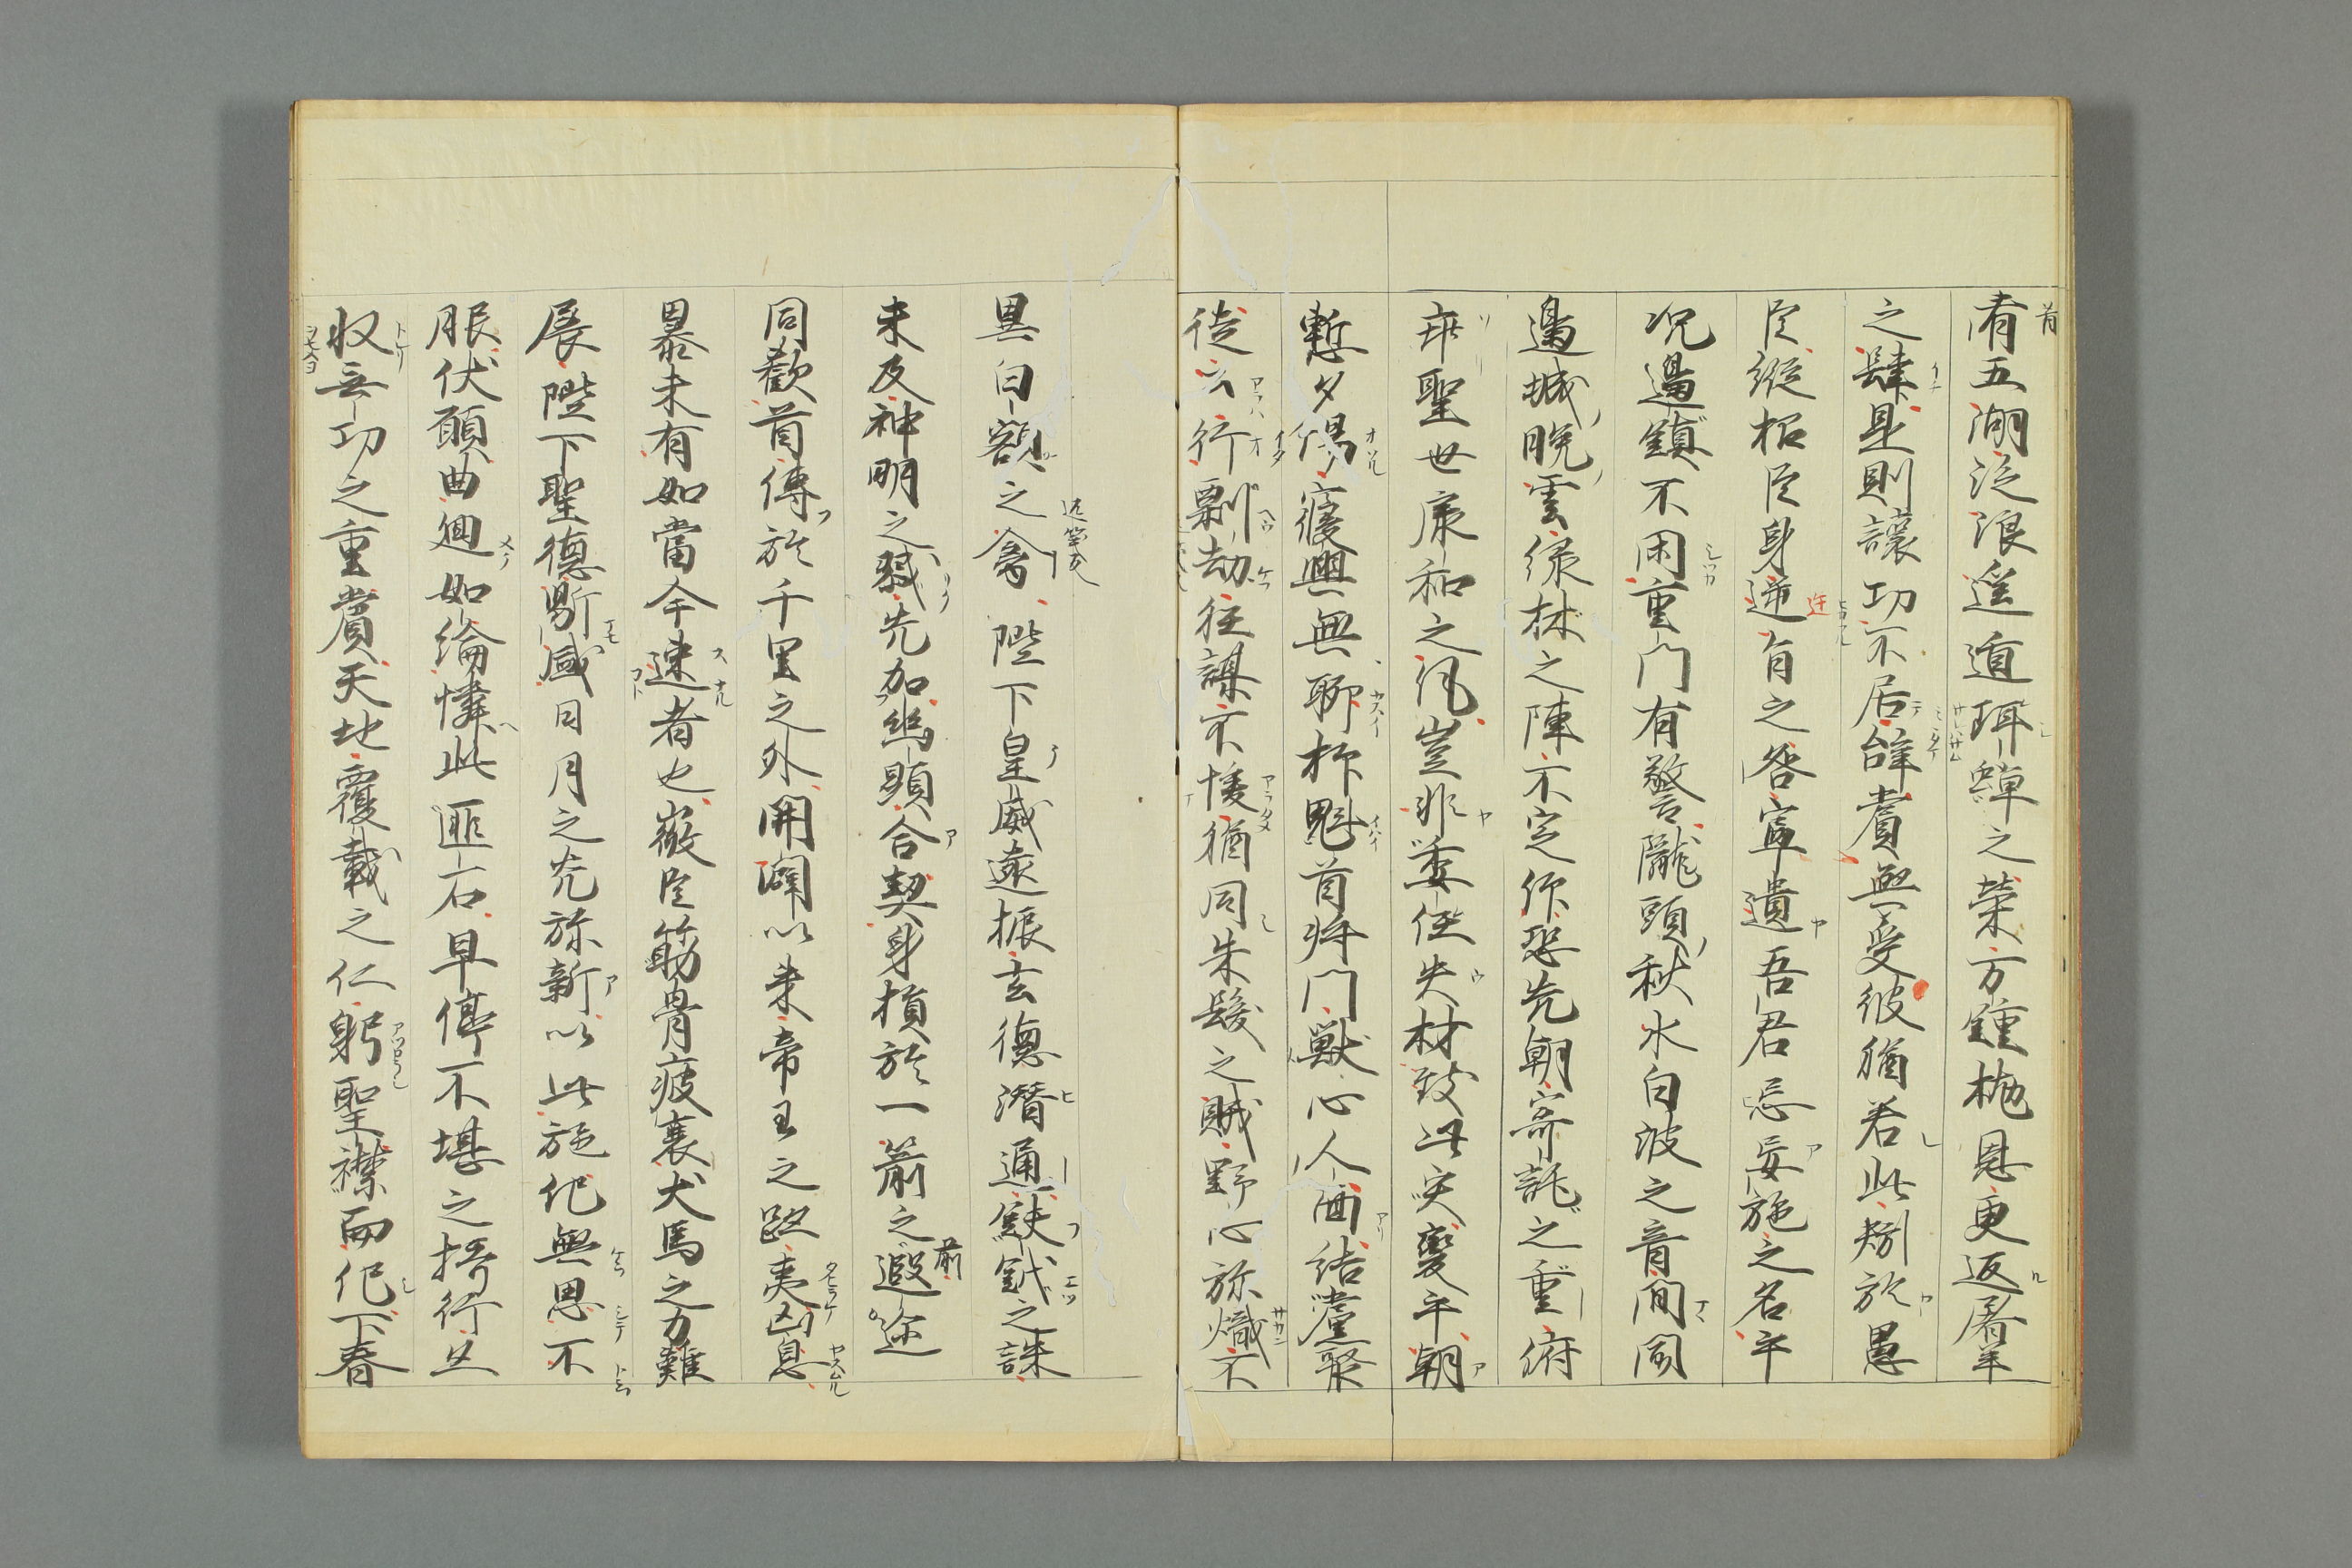 肴五湖泛浪遥遁珥蟬之榮万鍾抛恩更返屠羊
之肆是則讓功不居辭賞無受彼猶若此矧於愚
臣縦招臣身逆旨之咎寧遺吾君忌妄施之名乎
况邊鎮不閑重門有警隴頭秋水白波之音間聞
邊城暁雲緑林之陣不定伱恐先朝寄託之重俯
非聖世康和之風豈非委任失材致此突変乎朝
慙夕惕寝興無聊抑魁首将門獣心人面結黨聚
徒云行剽劫往謀不悛猶同朱髪之賊野心弥熾不
異白額之禽陛下皇威遠振玄徳潜通鈇鉞之誅
未及神明之殛先加幽顕合契身損於一箭之前遐迩
同歡首傳於千里之外開闢以来帝王之跡夷凶息
暴未有如當今速者也微臣筋骨疲褰犬馬之力難
展陛下聖徳斯感日月之光弥新以此施化無思不
服伏願曲廻如綸憐此匪石早停不堪之授行又
収無功之重賞天地覆載之仁躬聖襟而化下春